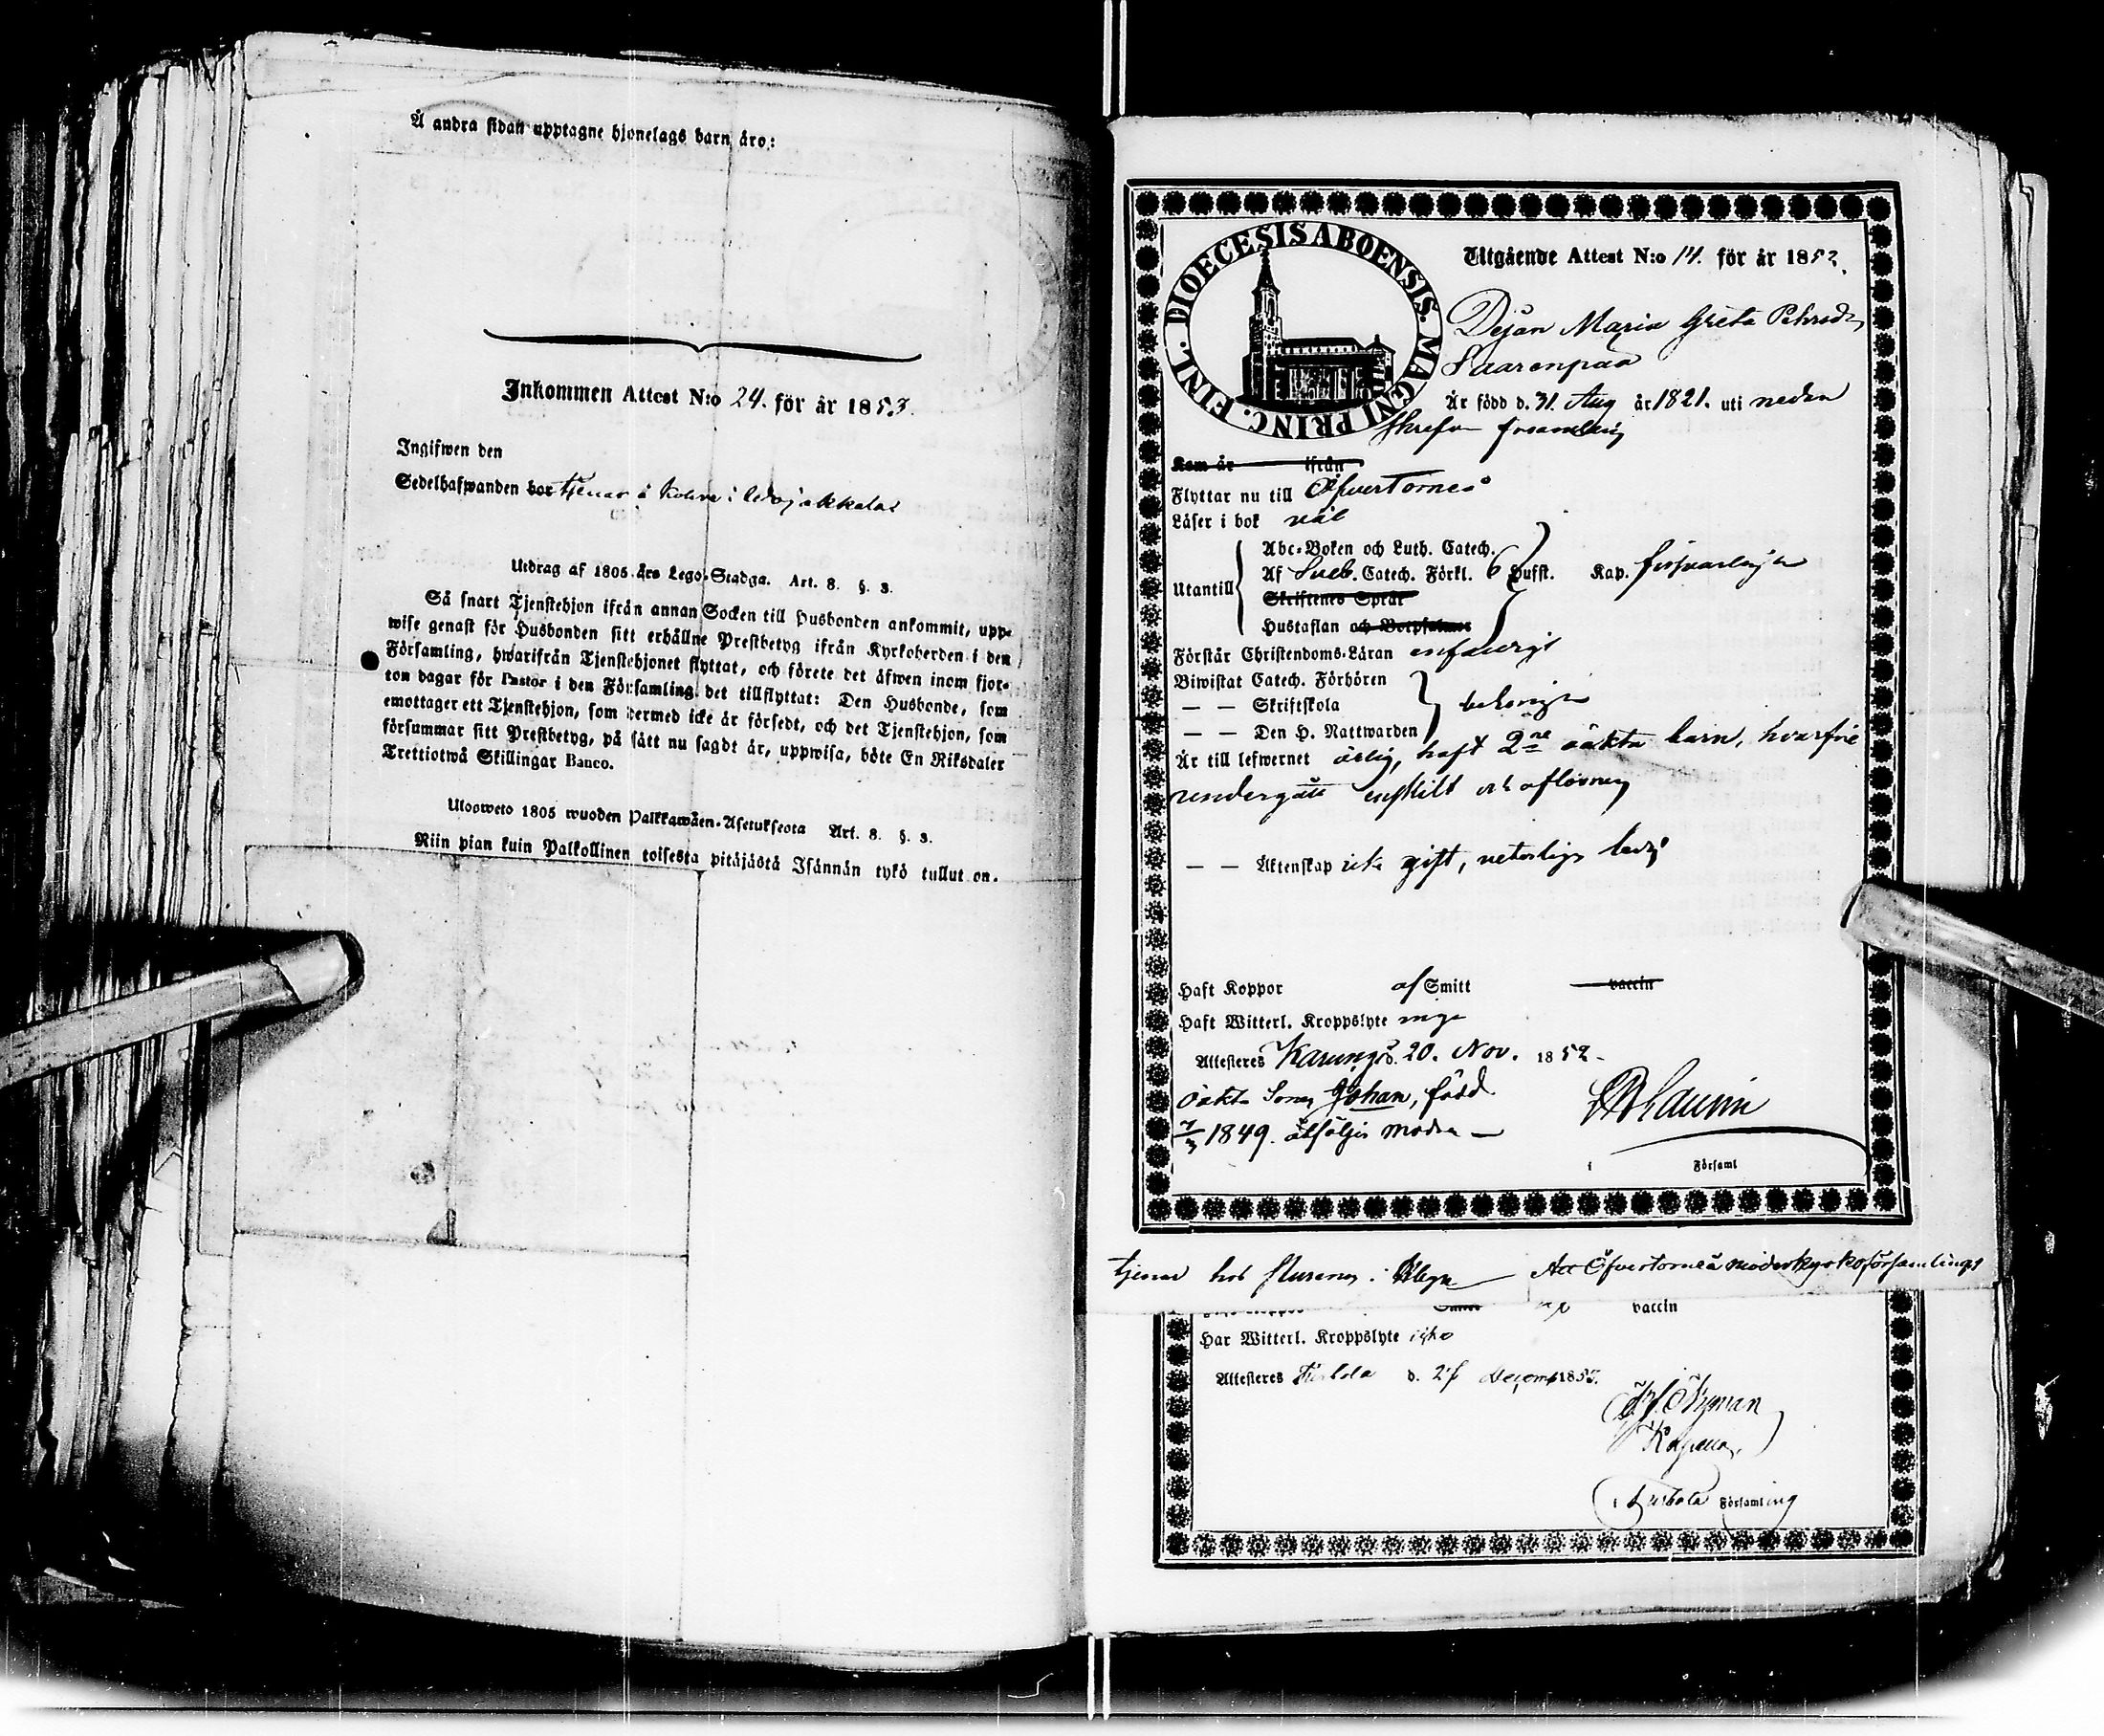 Å andra sidan upptagne hjonelags barn äro:
Inkommen Attest N:o 24. för år 1853.
Ingifwen den
Sedelhafwanden bor tjenar å i
Utdrag af 1805 års Lego-Stadga. Art. 8. §. 3.
Så snart Tjenstehjon ifrån annan Socken till Husbonden ankommit, upp-
wise genast för Husbonden sitt erhållne Prestbetyg ifrån Kyrkoherden i den
Församling, hwarifrån Tjenstehjonet flyttat, och förete det äfwen inom fjor-
ton dagar för Pastor i den Församling det tillflyttat: Den Husbonde, som
emottager ett Tjenstehjon, som dermed icke är försedt, och det Tjenstehjon, som
försummar sitt Prestbetyg, på sätt nu sagdt är, uppwisa, böte En Riksdaler
Trettiotwå Skillingar Banco.
Ulosweto 1805 wuoden Palkkawäen-Asetuksesta Art. 8. §. 3.
Niin pian kuin Palkollinen toisesta pitäjästä Isännän tykö tullut on.
DIOECESIS ABOENSIS. MAGNI PRINC. FINL.
Utgående Attest N:o 14. för år 1852.
Dejan Maria Greta Pehrsdr
Saarenpaa
Är född d. 31. Aug år 1821. uti nedan
skrefne församling
Kom år ifrån
Flyttar nu till Öfvertorneå
Läser i bok väl
Utantill
Abc-Boken och Luth. Catech.
Af Sveb. Catech. Förkl. 6 Hufst. Kap. försvarligen
Skriftenes Språk
Hustaflan och Botpsalmer
Förstår Christendoms-Läran enfaldigt
Biwistat Catech. Förhören
— — Skriftskola behörigen
— — Den H. Nattwarden
Är till lefwernet ärlig, haft 2ne oäkta barn, hvarför
undergått enskilt och aflösning
— — Äktenskap icke gift, veterligen ledig
Haft Koppor af Smitt vaccin
Haft Witterl. Kroppslyte inga
Attesteras Karungi d. 20. Nov. 1852.
oäkta Sonen Johan, född
7/3 1849. åtföljer modren —
i Församl
tjenar hos i — Att Öfvertorneå moderkyrkoförsamlings
vaccin
Har Witterl. Kroppslyte icke
Attesteras Turtola d. Decemb 1853.
Nyman
i Turtola Församling